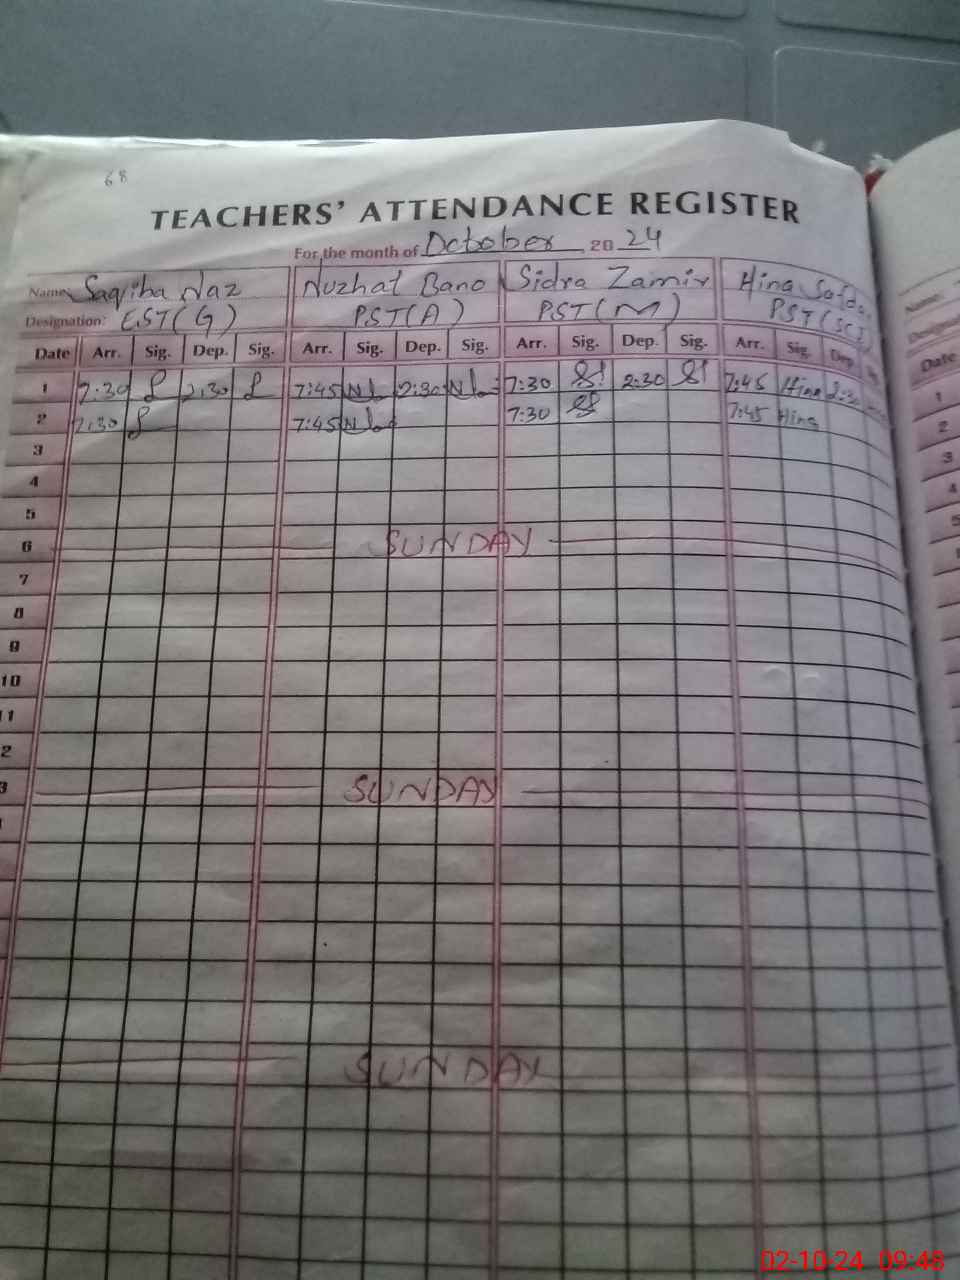 68
TEACHERS' ATTENDANCE REGISTER
For the month of October 2024
Name: Saqiba Naz Nuzhat Bano Sidra Zamir Hina Safda
Designation: EST(G) PST(A) PST(M) PST(SC)
Date Arr. Sig. Dep. Sig. Arr. Sig. Dep. Sig. Arr. Sig. Dep. Sig. Arr. Sig. Dep.
1 7:30 2:30 7:45 2:30 7:30 2:30 7:45 Hina 2:30
2 7:30 7:45 7:30 7:45 Hina
3
4
5
6 SUNDAY
7
8
9
10
11
2
3 SUNDAY
SUNDAY
Name:
Date
1
2
3
4
5
02-10-24 09:48